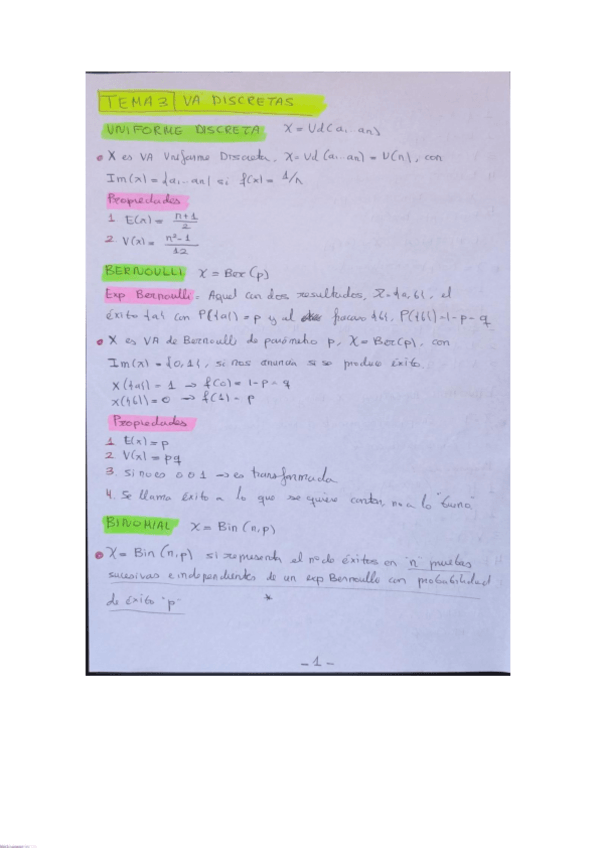 TEMA 3 VA DISCRETAS
UNIFORME DISCRETA X = Ud(a,...an)
• X es VA Uniforme Discreta, X = Ud (a...an) = U(n), con
Im(x) = {a,...an} si f(x) = 1/n
Propiedades
1. E(x) = n+1/2
2. V(x) = n²-1/12
BERNOULLI X = Ber (p)
Exp Bernoulli = Aquel con dos resultados, X={a,b}, el
éxito {a} con P({a}) = p y al fracaso {b}, P({b})=1-p=q
• X es VA de Bernoulli de parámetro p, X = Ber(p), con
Im(x) = {0,1}, si nos anuncia si se produce éxito.
X({a}) = 1 → f(0) = 1-p = q
X({b}) = 0 → f(1) = p
Propiedades
1 E(x) = p
2 V(x) = pq
3. Si no es 0 o 1 → es transformada
4. Se llama éxito a lo que se quiere contar, no a lo "bueno".
BINOMIAL X = Bin (n,p)
• X = Bin (n,p) si representa el nº de éxitos en "n" pruebas
sucesivas e independientes de un exp Bernoulli con probabilidad
de éxito "p" *
- 1 -